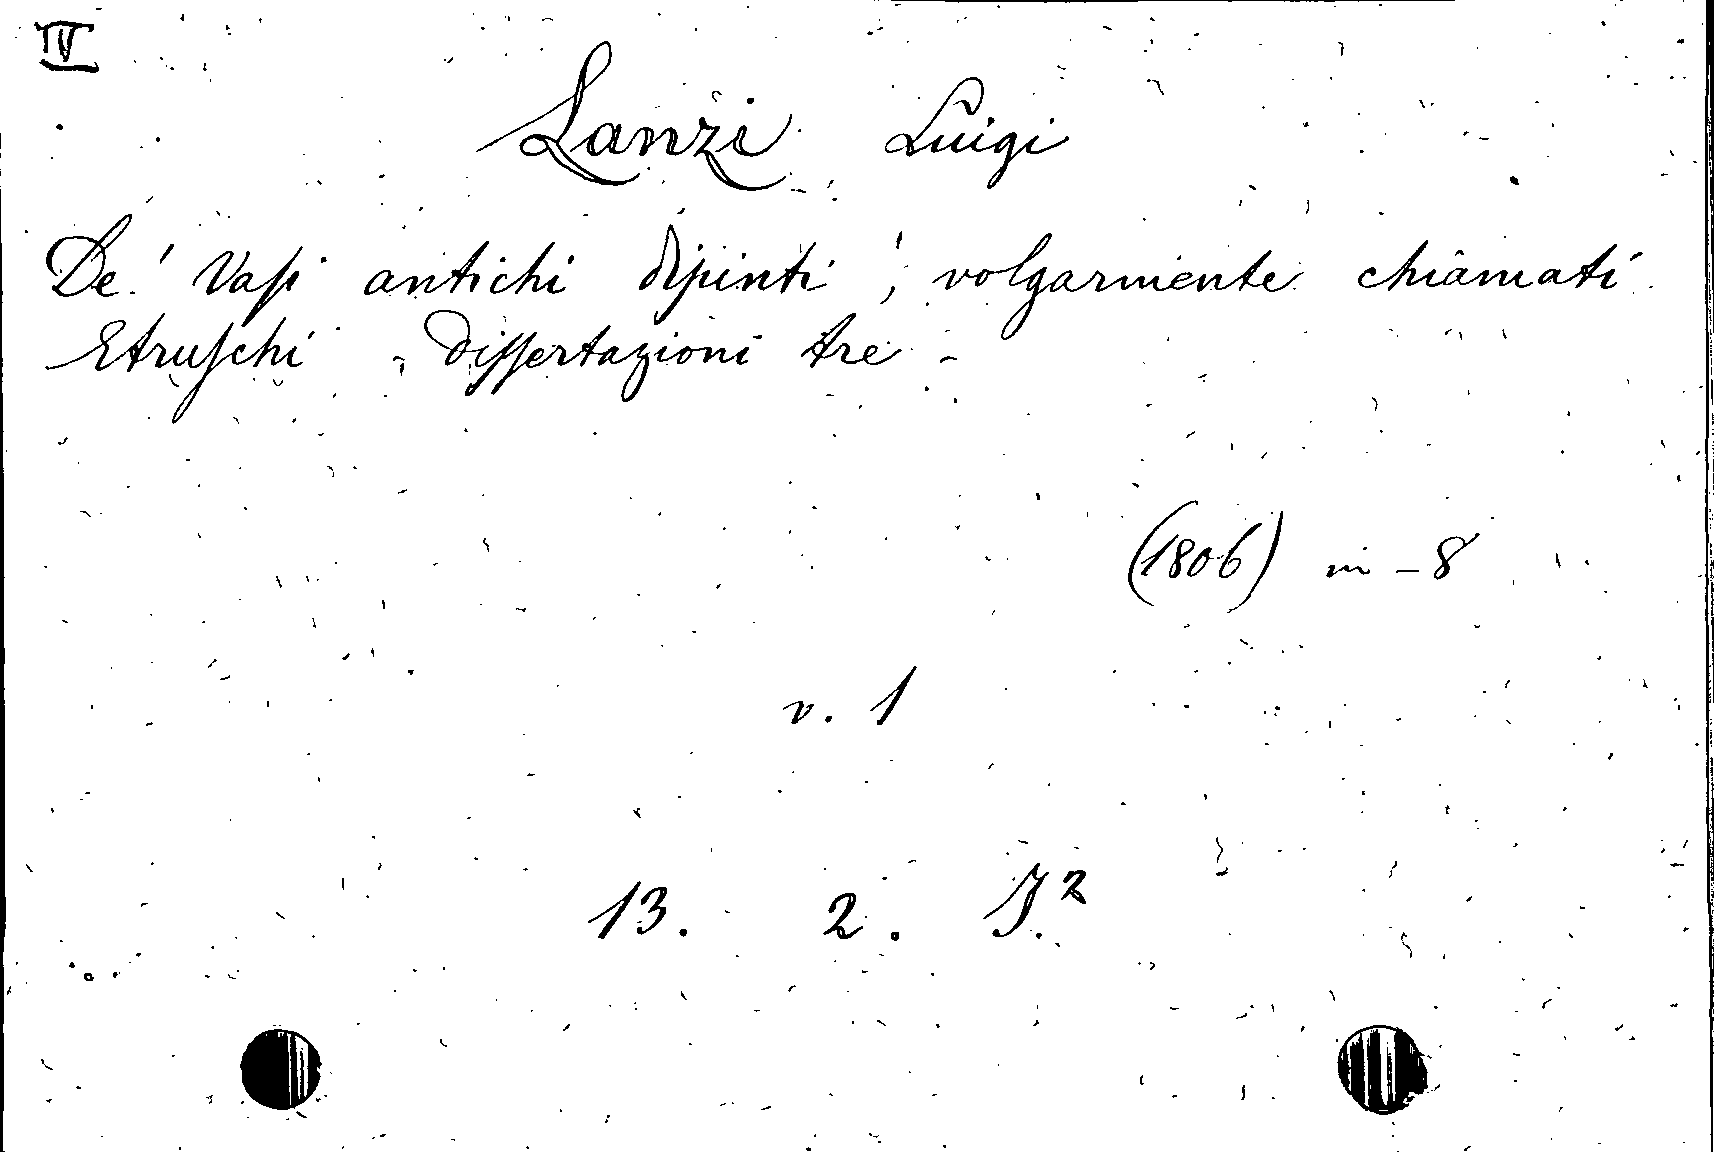 IV
Lanzi Luigi
De' Vasi antichi dipinti, volgarmente chiamati
Etruschi, dissertazioni tre -
(1806) in - 8
v. 1
13. 2. J.²